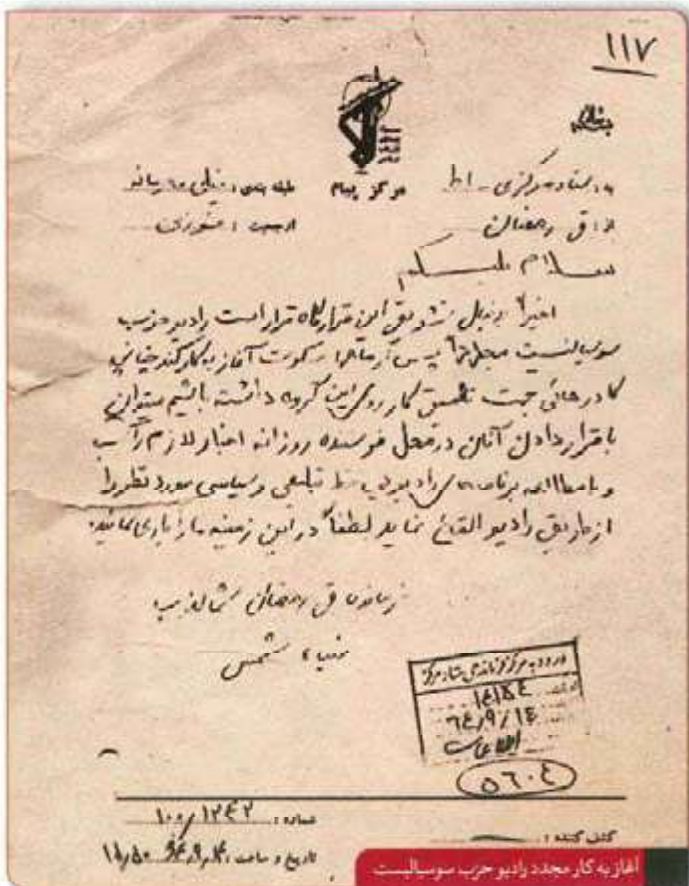 ۱۱۷
بسمه تعالی
مرکز پیام
به: ستاد مرکزی - اط
طبقه بندی: خیلی محرمانه
از: ق رمضان
ارجحیت:
سلام علیکم
اخیراً بدنبال تشویق این قرارگاه قرار است رادیو حزب
سوسیالیست مجدداً پس از ماهها سکوت آغاز بکار کند چنانچه
کادرهائی جهت کار روی این گروه داشته باشیم میتوان
با قرار دادن آنان در محل فرستنده روزانه اخبار لازم را کسب
و با مطالعه برنامه های رادیو خط تبلیغی و سیاسی مورد نظر را
از طریق رادیو القاء نماید لطفاً در این زمینه ما را یاری نمائید.
فرمانده ق رمضان
شمس
ورود به مرکز فرماندهی ستاد مرکزی
۱۴۱۵۴
۶۴/۹/۱۴
اطلاعات
۵۶۰۴
شماره: ۱۰۰/۱۲۴۲
کشف کننده:
تاریخ و ساعت:
آغاز به کار مجدد رادیو حزب سوسیالیست